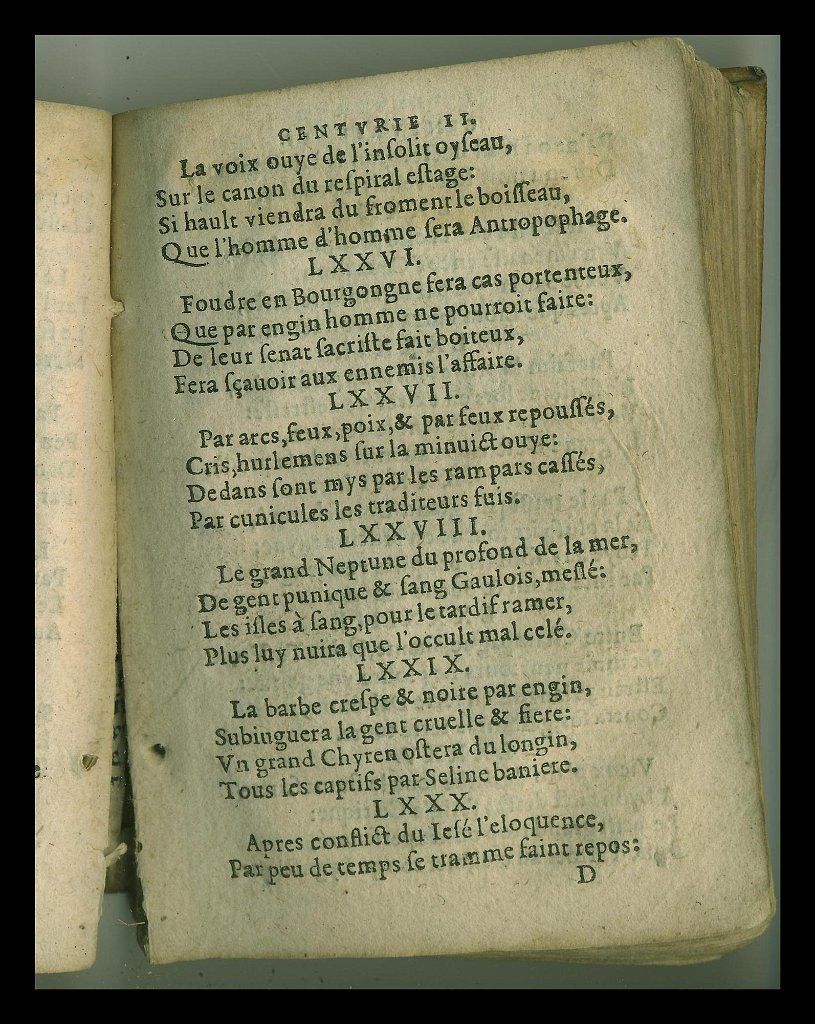 CENTVRIE II.
La voix ouye de l'inſolit oyſeau,
Sur le canon du reſpiral eſtage:
Si hault viendra du froment le boiſſeau,
Que l'homme d'homme ſera Antropophage.
LXXVI.
Foudre en Bourgongne fera cas portenteux,
Que par engin homme ne pourroit faire:
De leur ſenat ſacriſte fait boiteux,
Fera ſçauoir aux ennemis l'affaire.
LXXVII.
Par arcs,feux,poix,& par feux repouſſés,
Cris,hurlemens ſur la minuict ouye:
Dedans ſont mys par les rampars caſſés,
Par cunicules les traditeurs fuis.
LXXVIII.
Le grand Neptune du profond de la mer,
De gent punique & ſang Gaulois,meſlé:
Les iſles à ſang,pour le tardif ramer,
Plus luy nuira que l'occult mal celé.
LXXIX.
La barbe creſpe & noire par engin,
Subiuguera la gent cruelle & fiere:
Vn grand Chyren oſtera du longin,
Tous les captifs par Seline baniere.
LXXX.
Apres conflict du leſé l'eloquence,
Par peu de temps ſe tramme faint repos:
D